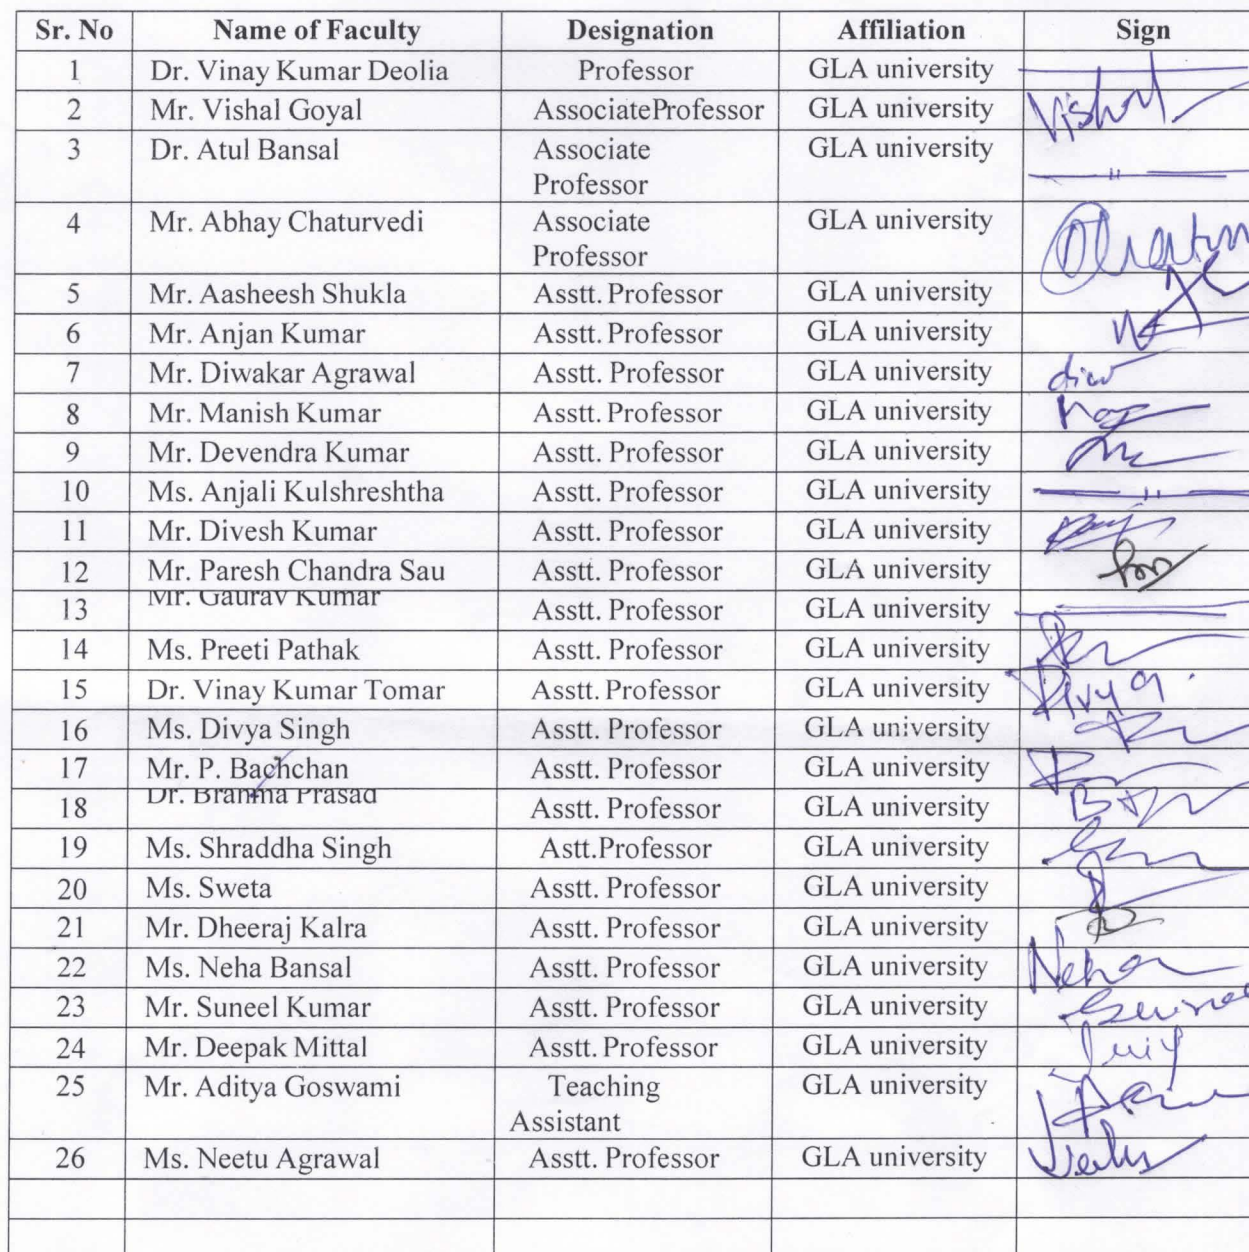 Sr. No Name of Faculty Designation Affiliation Sign
1 Dr. Vinay Kumar Deolia Professor GLA university
2 Mr. Vishal Goyal AssociateProfessor GLA university Vishal
3 Dr. Atul Bansal Associate GLA university
Professor
4 Mr. Abhay Chaturvedi Associate GLA university
Professor
5 Mr. Aasheesh Shukla Asstt. Professor GLA university
6 Mr. Anjan Kumar Asstt. Professor GLA university
7 Mr. Diwakar Agrawal Asstt. Professor GLA university
8 Mr. Manish Kumar Asstt. Professor GLA university
9 Mr. Devendra Kumar Asstt. Professor GLA university
10 Ms. Anjali Kulshreshtha Asstt. Professor GLA university
11 Mr. Divesh Kumar Asstt. Professor GLA university
12 Mr. Paresh Chandra Sau Asstt. Professor GLA university
13 Mr. Gaurav Kumar Asstt. Professor GLA university
14 Ms. Preeti Pathak Asstt. Professor GLA university
15 Dr. Vinay Kumar Tomar Asstt. Professor GLA university
16 Ms. Divya Singh Asstt. Professor GLA university Divya
17 Mr. P. Bachchan Asstt. Professor GLA university
18 Dr. Brahma Prasad Asstt. Professor GLA university
19 Ms. Shraddha Singh Astt.Professor GLA university
20 Ms. Sweta Asstt. Professor GLA university
21 Mr. Dheeraj Kalra Asstt. Professor GLA university
22 Ms. Neha Bansal Asstt. Professor GLA university Neha
23 Mr. Suneel Kumar Asstt. Professor GLA university
24 Mr. Deepak Mittal Asstt. Professor GLA university
25 Mr. Aditya Goswami Teaching GLA university
Assistant
26 Ms. Neetu Agrawal Asstt. Professor GLA university